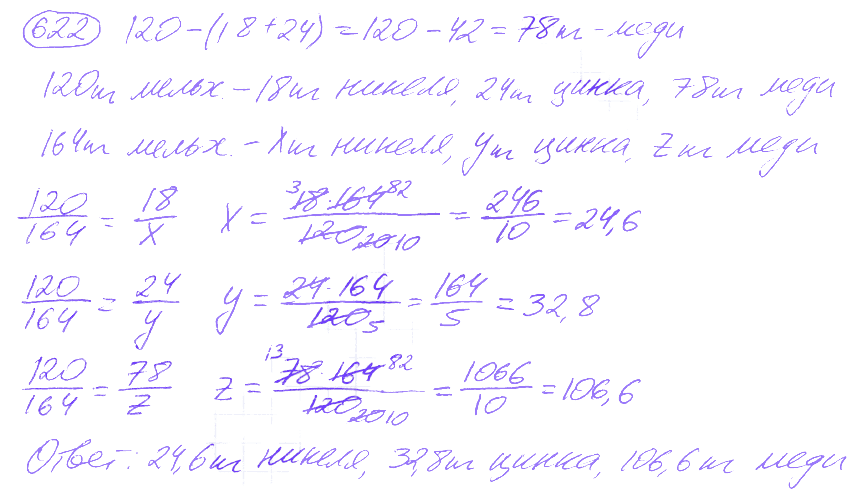 622 120 - (18 + 24) = 120 - 42 = 78 кг - меди
120 кг мельх. - 18 кг никеля, 24 кг цинка, 78 кг меди
164 кг мельх. - X кг никеля, y кг цинка, Z кг меди
120/164 = 18/X X = 3 18 · 164 82 / 120 20 10 = 246/10 = 24,6
120/164 = 24/y y = 24 · 164 / 120 5 = 164/5 = 32,8
120/164 = 78/Z Z = 13 78 · 164 82 / 120 20 10 = 1066/10 = 106,6
Ответ: 24,6 кг никеля, 32,8 кг цинка, 106,6 кг меди